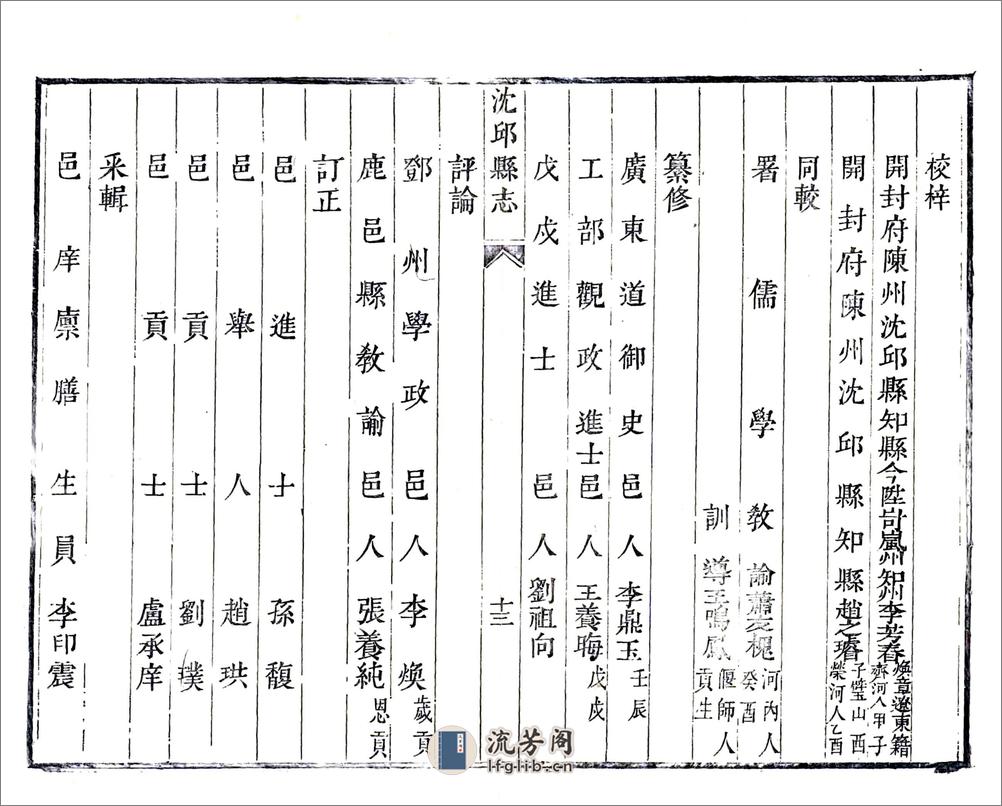 校梓
開封府陳州沈邱縣知縣今陞岢嵐州知州李芳春煥章遼東籍齊河人甲子
開封府陳州沈邱縣知縣趙之璿子璧山西榮河人乙酉
同較
署儒學教諭蕭友槐河內人癸酉
訓導王鳴鳳偃師人貢生
纂修
廣東道御史邑人李鼎玉壬辰
工部觀政進士邑人王養晦戊戌
戊戌進士邑人劉祖向
沈邱縣志
十三
評論
鄧州學政邑人李煥歲貢
鹿邑縣教諭邑人張養純恩貢
訂正
邑進士孫馥
邑舉人趙珙
邑貢士劉璞
邑貢士盧承庠
采輯
邑庠廩膳生員李印震
流芳阁
lfglib.cn